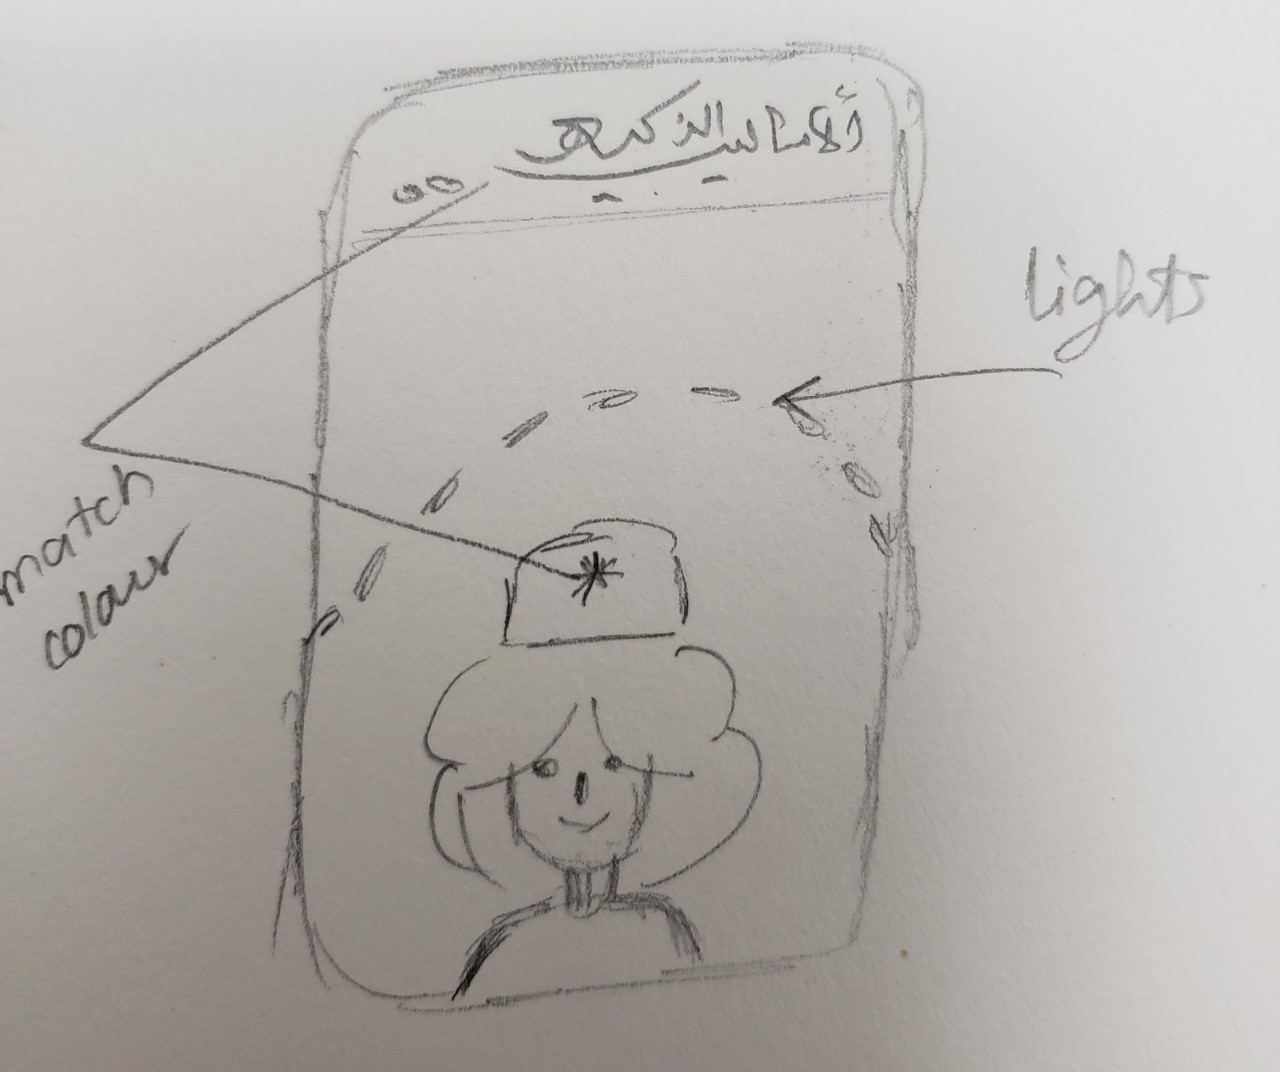 ألاساليب الذكيه
lights
match
colour